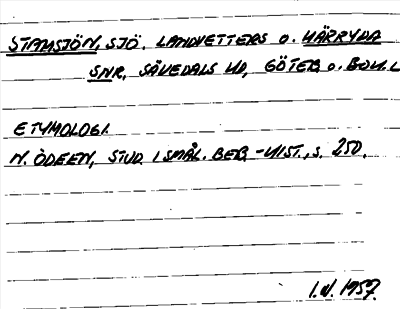 STAMSJÖN, SJÖ. LANDVETTERS O. HÄRRYDA
SNR, SÄVEDALS HD, GÖTEB. O. BOH. L
ETYMOLOGI.
N. ÖDEEN, STUD. I SMÅL. BEB.-HIST., S. 250.
1957.